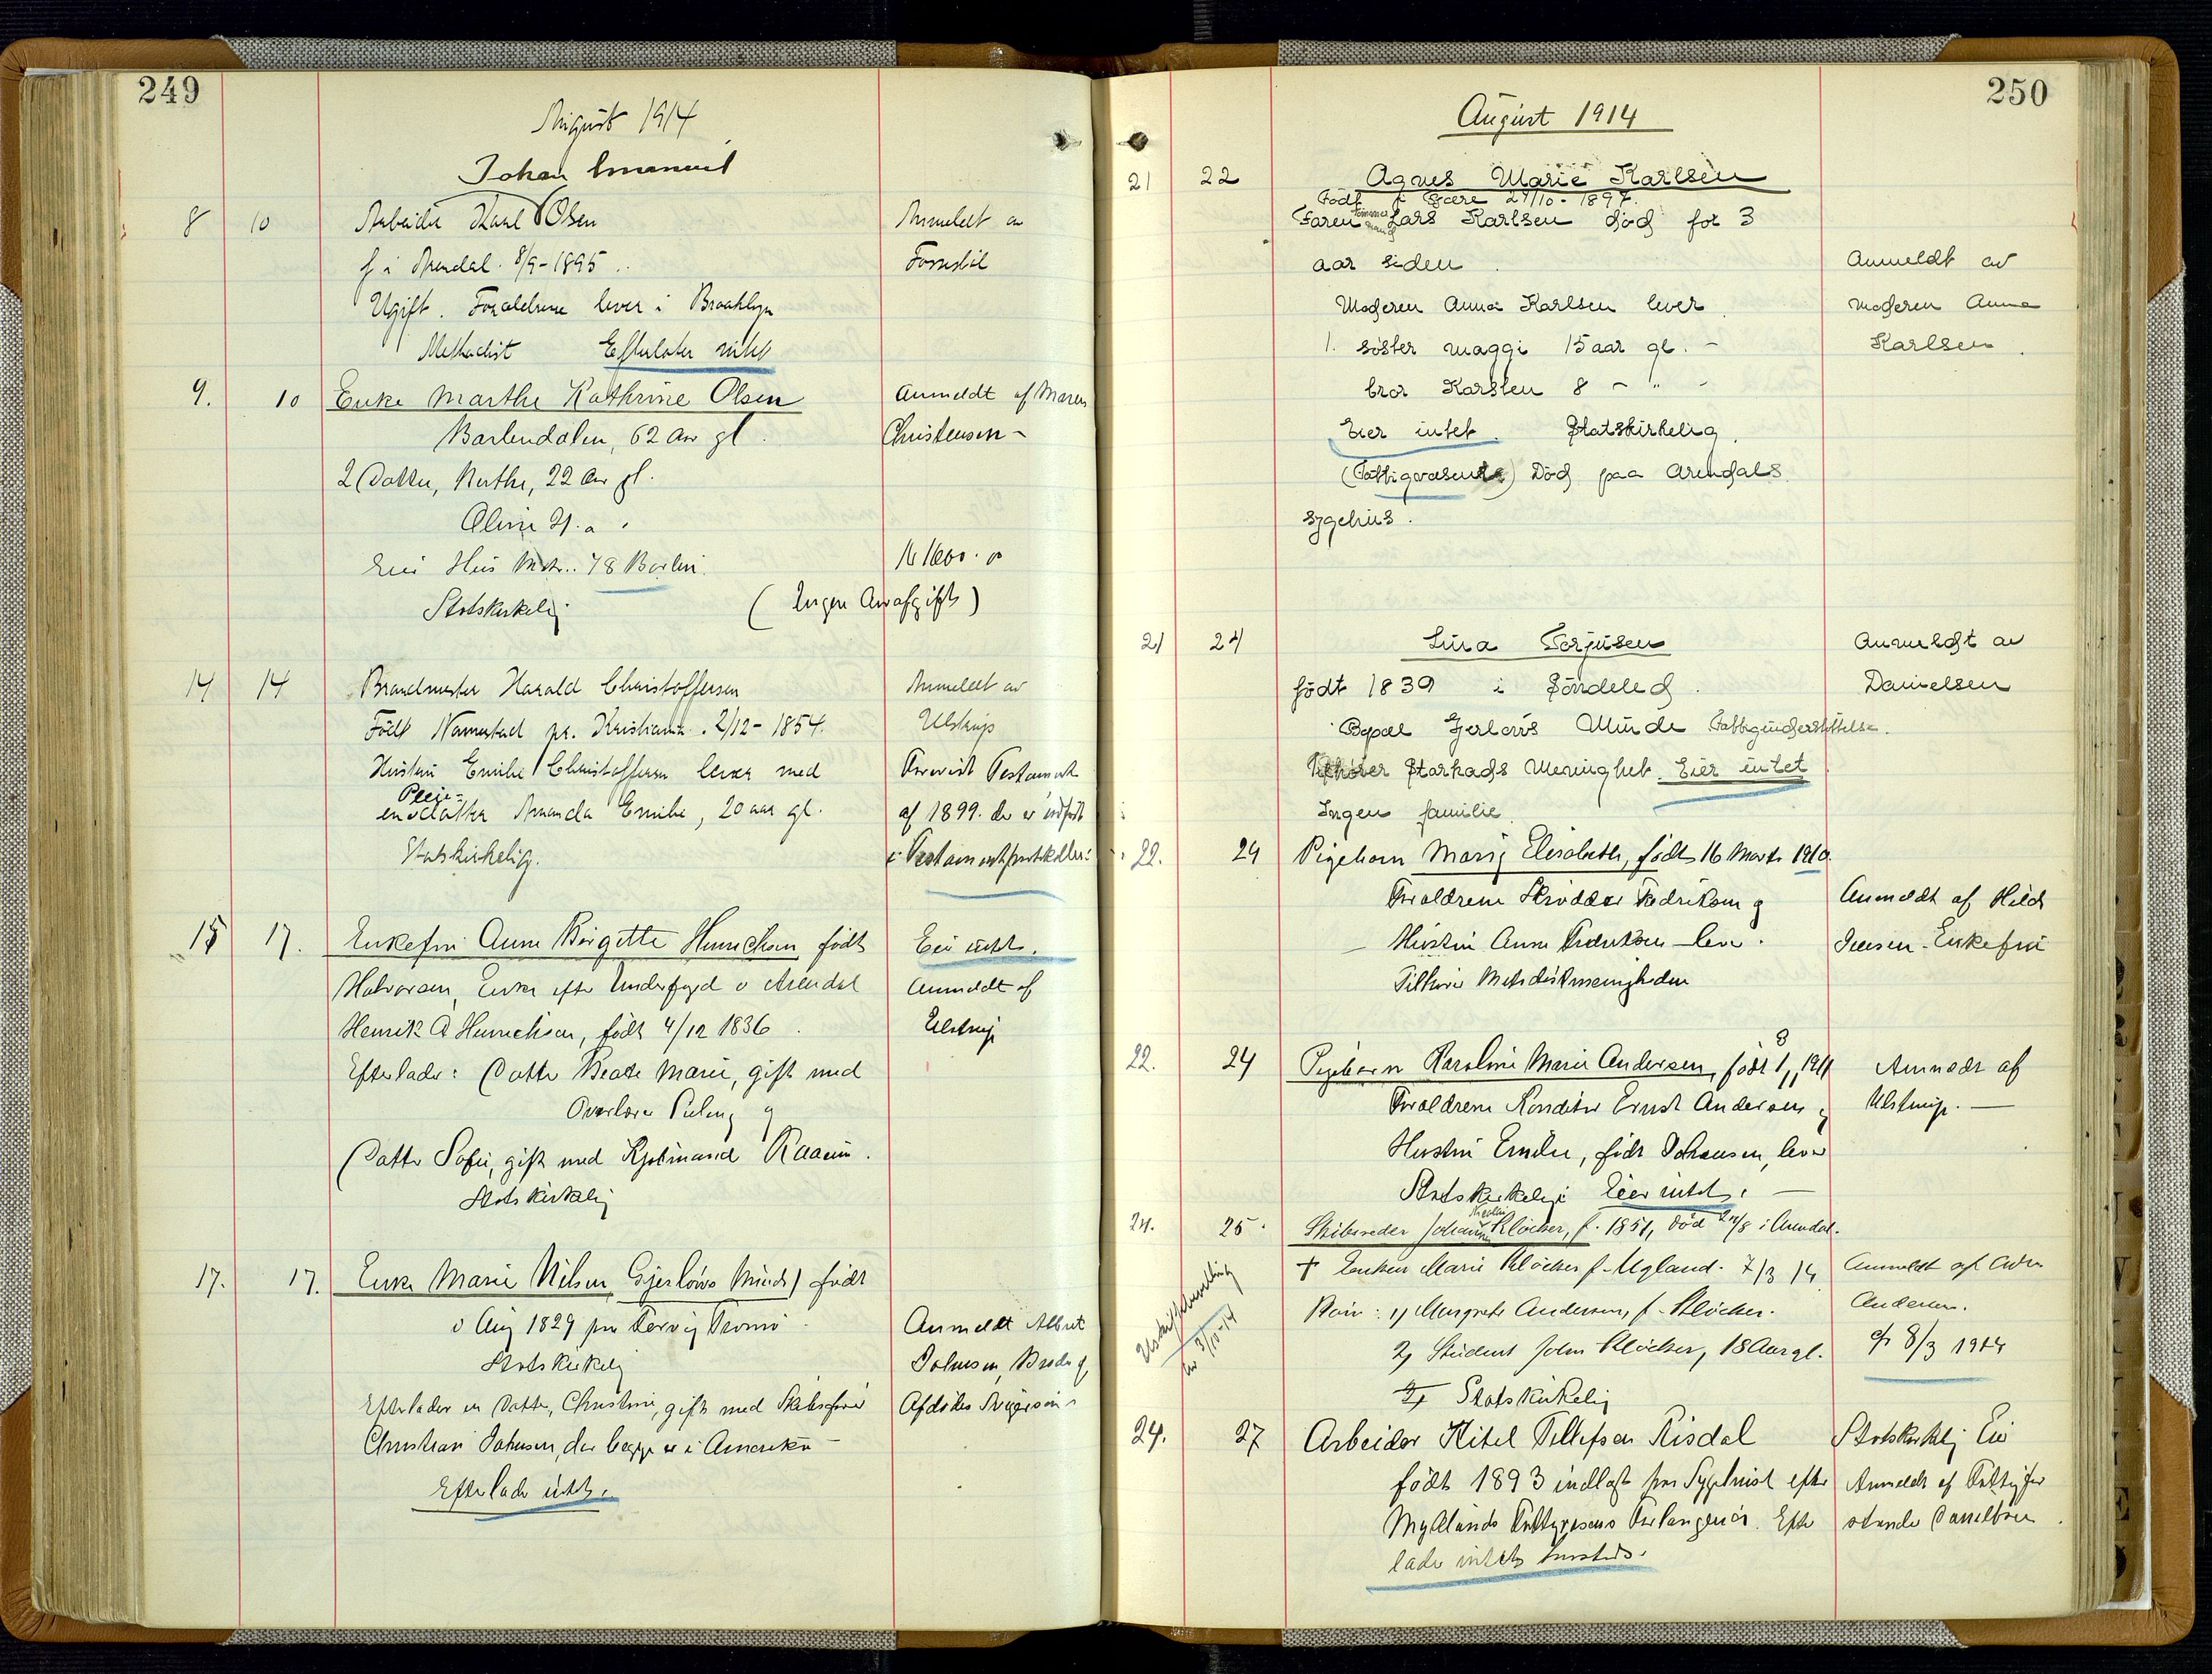 249
August 1914
Johan Emanuel
8 10 Arbeider Karl Olsen Anmeldt av
f i Arendal. 8/9-1895
Ugift. Forældrene lever i Brooklyn
Methodist Efterlater intet
9. 10 Enke Marthe Kathrine Olsen Anmeldt af Maren
Barbudalen, 62 Aar gl. Christensen-
2 Døttre, Marthe, 22 Aar gl.
Eier Hus Matr. 78 Barbu. 1600.00
Statskirkelig (Ingen Arvafgift)
14 14 Brandmester Harald Christoffersen Anmeldt av
Født pr. Kristiania. 2/12-1854. Ulstrup
Hustru Emilie Christoffersen lever med Testament
Pleie-
en datter Amanda Emilie, 20 aar gl. af 1899. der er indført
Statskirkelig. i Testamentprotokollen:
15 17. Enkefru Anne Birgitte Henrichsen født Eier intet.
Halvorsen, Enke efter Underfoged i Arendal Anmeldt af
Henrik A Henrichsen, født 4/12 1836 Ulstrup
Efterlader: Datter Beate Marie, gift med
Overlærer
Datter Sofie, gift med Kjøbmand
Statskirkelig
17. 17. Enke Marie Nilsen Gjerløws Minde) født
Aug 1829 paa Tromø Anmeldt Albert
Statskirkelig Johnsen, Broder af
Efterlader en Datter, Christine, gift med Skibsfører Afdødes Svigersøn
Christian Johnsen, der begge er i Amerika
Efterlader intet.
250
August 1914
21 22 Agnes Marie Karlsen
Født i Fjære 29/10-1897.
Faren Tømmermand Lars Karlsen død for 3
aar siden Anmeldt av
Moderen Anna Karlsen lever moderen Anna
1. søster maggi 15 aar gl. - Karlsen
bror Karsten 8 - " -
Eier intet. Statskirkelig.
(Fattigvæsenet) Død paa Arendals
sygehus.
21 24 Lina Terjesen Anmeldt av
født 1839 i Søndeled. Danielsen
Bopæl Gjerløws Minde Fattigunderstøttelse.
Tilhører Starkads Menighet. Eier intet
Ingen familie
22. 24 Pigebarn Marij Elisabeth, født 16 Marts 1910.
Forældrene Skrædder Fredriksen og Anmeldt af Hild
Hustru Anna Fredriksen lever. Jensen - Enkefru
Tilhører Methodistmenigheden
22. 24 Pigebarn Karoline Marie Andersen, født 1/8 1911 Anmeldt af
Forældrene Konditor Ernst Andersen og Ulstrup.
Hustru Emilie, født Johansen, lever
Statskirkelige Eier intet.
24. 25. Skibsreder Johan Kløcker, f. 1851, død 24/8 i Arendal.
+ Enken Marie Kløcker f. Ugland. 7/3 14 Anmeldt af
Børn: 1) Margrete Andersen, f. Kløcker. Andersen.
2) Student John Kløcker, 18 Aar gl. 8/3 1914
Statskirkelig
3/10-14
24. 27 Arbeider Kitel Tellefsen Risdal Statskirkelig
født 1893 indlagt paa Sygehuset efter Anmeldt af Fattigfor
Myklands Fattigvæsens Forlangende. Efter stander Danielsen
lader intet